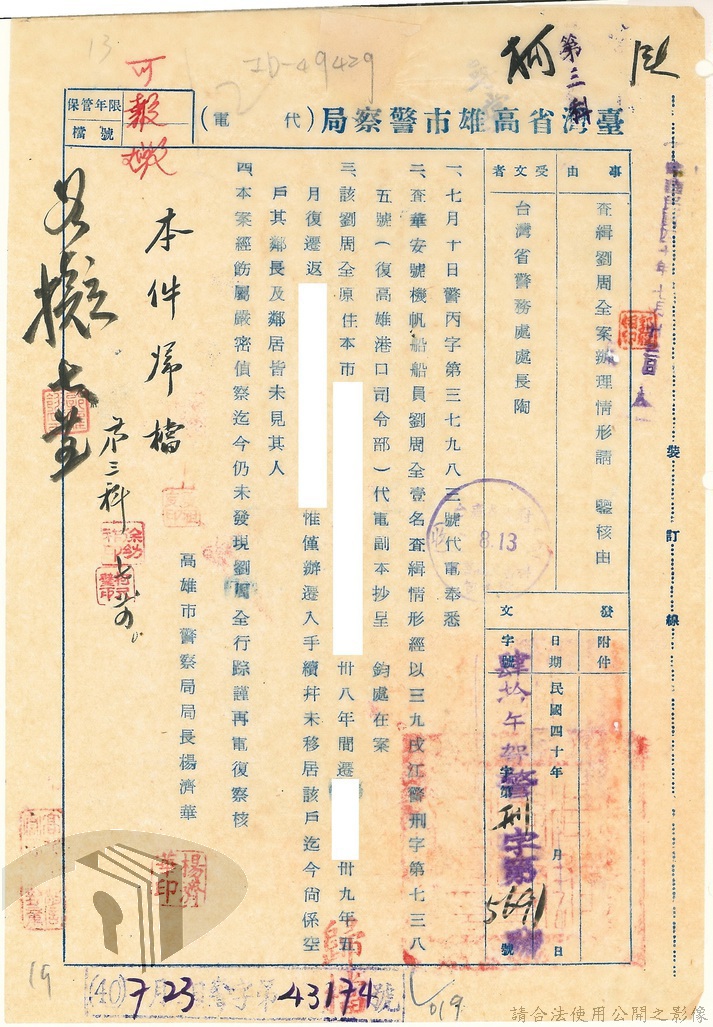 臺灣省高雄市警察局(代電)
保管年限
檔號
第三科
可
事由
查緝劉周全案辦理情形請 鑒核由
受文者
台灣省警務處處長陶
發文
附件
日期
民國四十年 月 日
字號
肆拾年 警刑字第5691號
8.13
裝訂線
一、七月十日警丙字第三七九八三號代電奉悉
二、查華安號機帆船船員劉周全壹名查緝情形經以三九戌江警刑字第七三八
五號(復高雄港口司令部)代電副本抄呈 鈞處在案
三、該劉周全原住本市
卅八年間遷
卅九年五
月復遷返
惟僅辦遷入手續幷未移居該戶迄今尙係空
戶其鄰長及鄰居皆未見其人
四、本案經飭屬嚴密偵察迄今仍未發現劉周全行踪謹再電復察核
高雄市警察局局長楊濟華
楊濟華印
本件歸檔
第三科
歸檔
(40)7月23 警字第43174號
ID-49429
13
19
019
請合法使用公開之影像